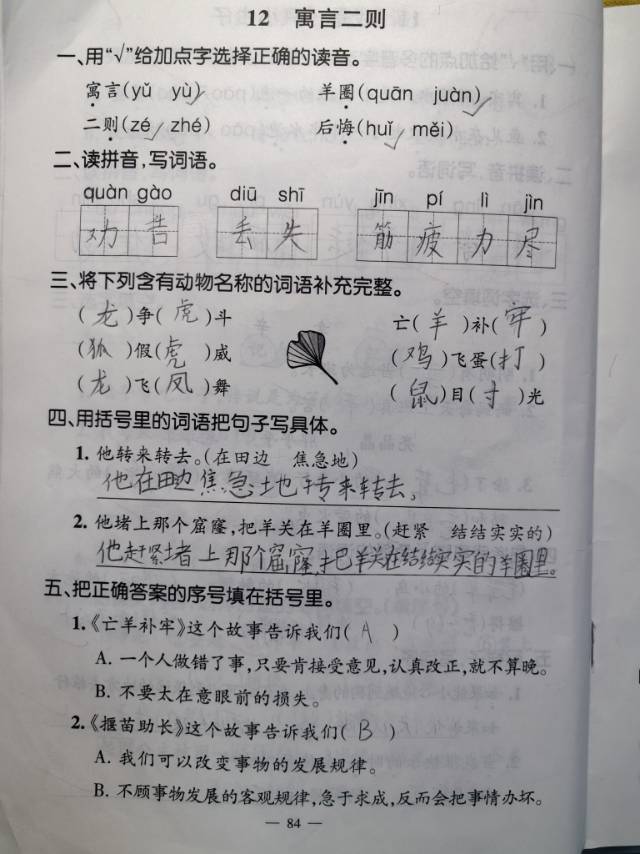 12 寓言二则
一、用“√”给加点字选择正确的读音。
寓言(yǔ yù√) 羊圈(quān juàn√)
二则(zé√ zhé) 后悔(huǐ√ měi)
二、读拼音,写词语。
quàn gào diū shī jīn pí lì jìn
劝告 丢失 筋疲力尽
三、将下列含有动物名称的词语补充完整。
(龙)争(虎)斗 亡(羊)补(牢)
(狐)假(虎)威 (鸡)飞蛋(打)
(龙)飞(凤)舞 (鼠)目(寸)光
四、用括号里的词语把句子写具体。
1. 他转来转去。(在田边 焦急地)
他在田边焦急地转来转去,
2. 他堵上那个窟窿,把羊关在羊圈里。(赶紧 结结实实的)
他赶紧堵上那个窟窿,把羊关在结结实实的羊圈里。
五、把正确答案的序号填在括号里。
1.《亡羊补牢》这个故事告诉我们( A )
A. 一个人做错了事,只要肯接受意见,认真改正,就不算晚。
B. 不要太在意眼前的损失。
2.《揠苗助长》这个故事告诉我们( B )
A. 我们可以改变事物的发展规律。
B. 不顾事物发展的客观规律,急于求成,反而会把事情办坏。
— 84 —